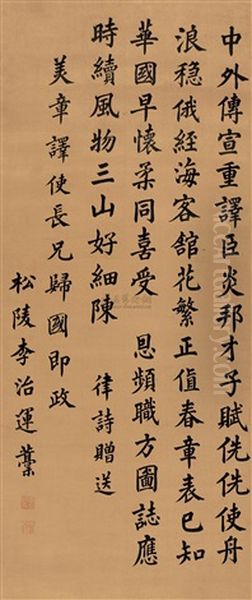 中外傳宣重譯臣炎邦才子賦侁侁使舟
浪穩俄經海客舘花繁正值春章表已知
華國早懷柔同喜受　恩頻職方圖誌應
時續風物三山好細陳　律詩贈送
美章譯使長兄歸國即政
松陵李治運藁